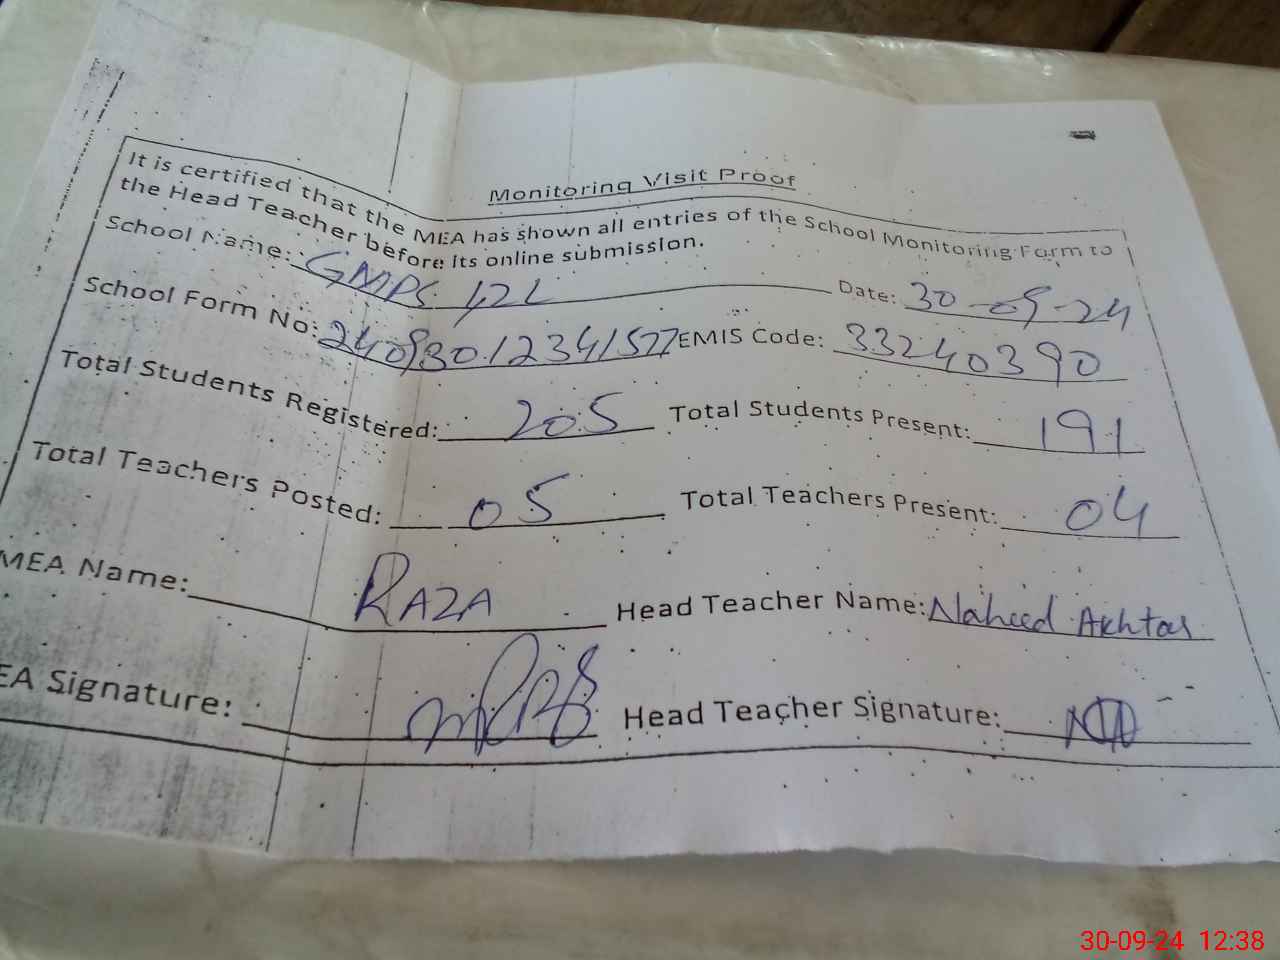 Monitoring Visit Proof
It is certified that the MEA has shown all entries of the School Monitoring Form to
the Head Teacher before its online submission.
School Name: GMPS 42L Date: 30-09-24
School Form No: 24093012341577 EMIS Code: 33240390
Total Students Registered: 205 Total Students Present: 191
Total Teachers Posted: 05 Total Teachers Present: 04
MEA Name: RAZA Head Teacher Name: Naheed Akhtar
EA Signature: Head Teacher Signature:
30-09-24 12:38